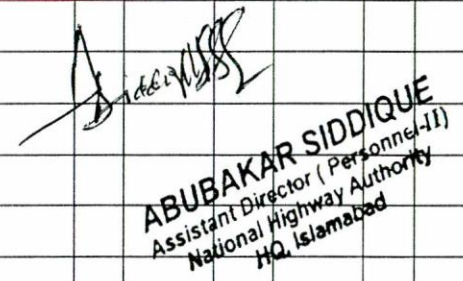 Siddique
ABUBAKAR SIDDIQUE
Assistant Director ( Personnel-II)
National Highway Authority
HQ, Islamabad